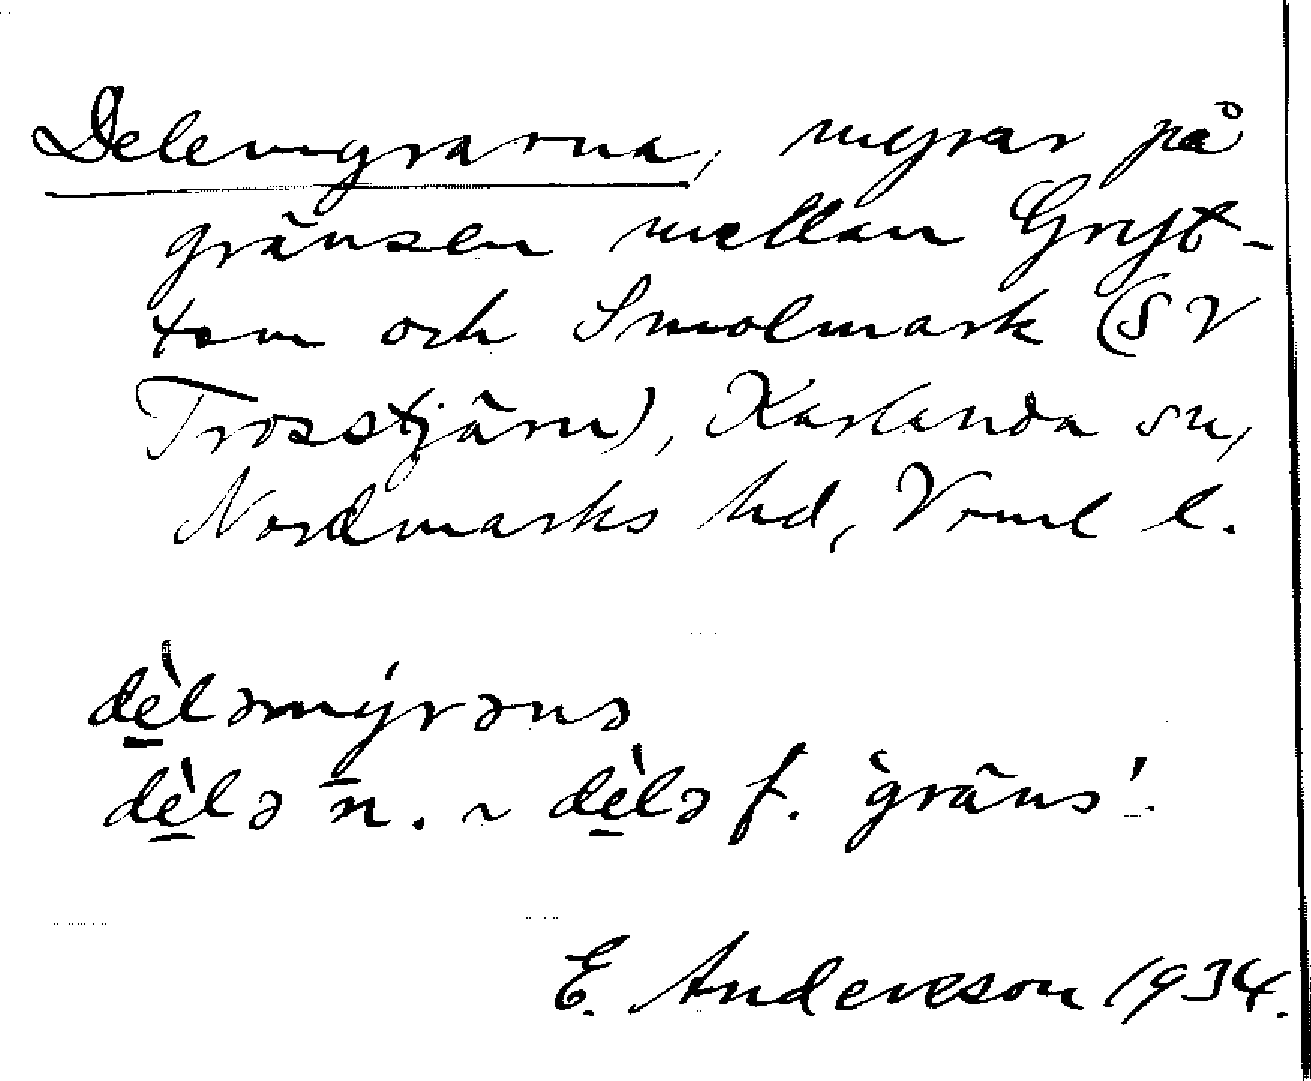 Delemyrarna, myrar på
gränsen mellan Gryt-
tom och Smolmark (SV
Trosstjärn), Karlanda sn,
Nordmarks hd, Vrml l.
dèləmýrəna
dèlə n. ~ dèlə f. 'gräns'.
E. Andersson 1934.